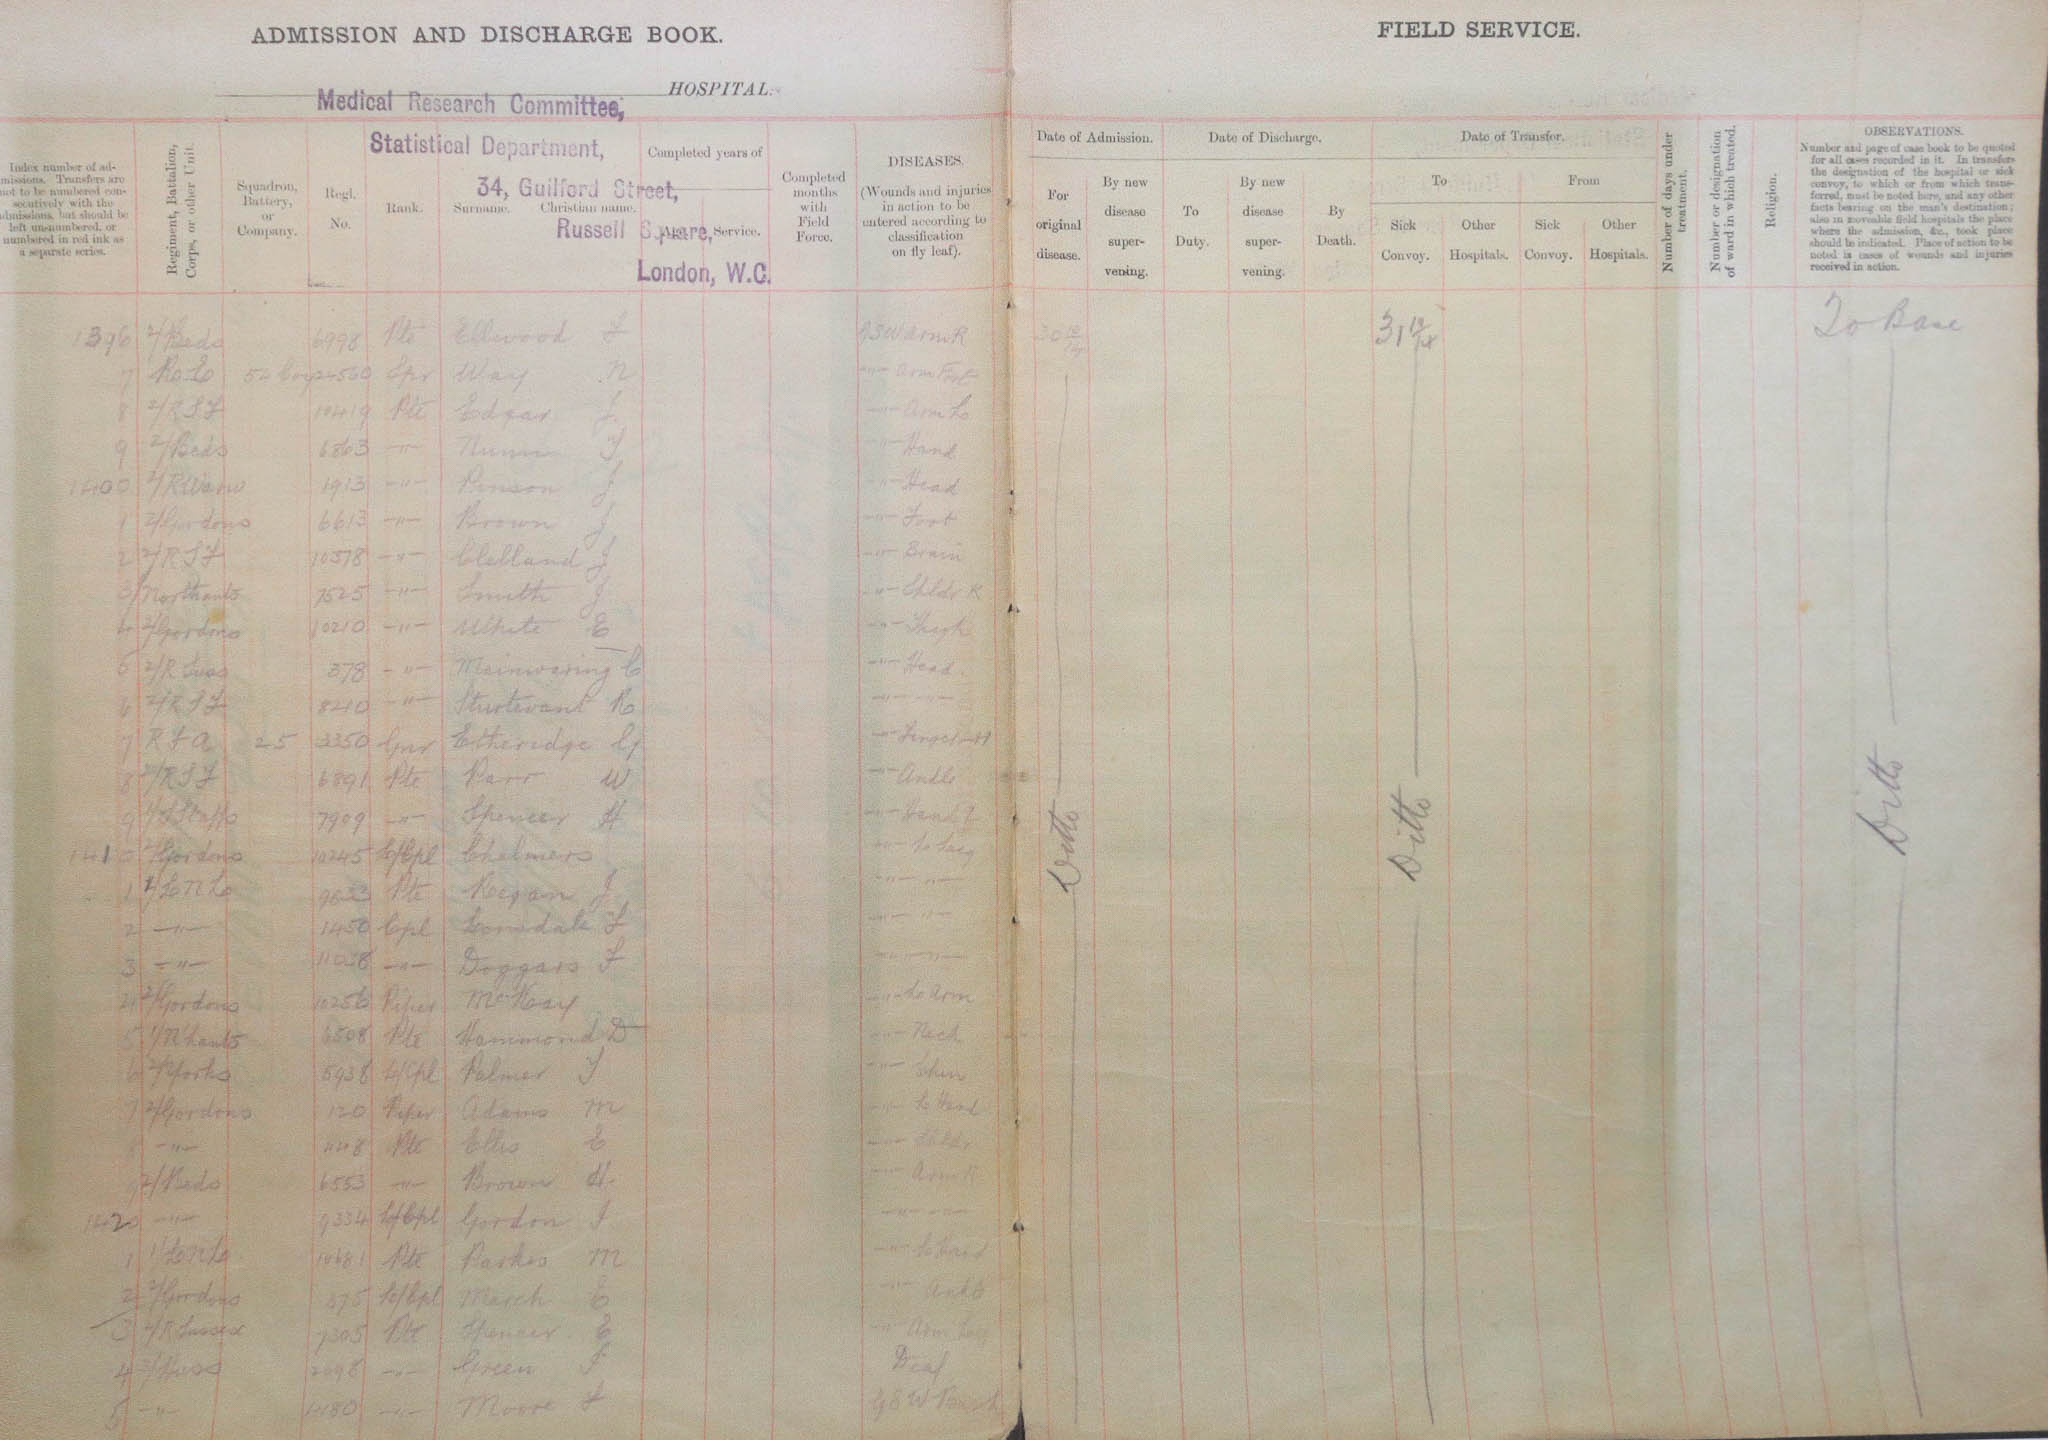 ADMISSION AND DISCHARGE BOOK.
FIELD SERVICE.
HOSPITAL.
Medical Research Committee,
Statistical Department,
34, Guilford Street,
Russell Square,
London, W.C.
Index number of ad-
missions. Transfers are
not to be numbered con-
secutively with the
admissions, but should be
left unnumbered, or
numbered in red ink as
a separate series.
Regiment, Battalion,
Corps, or other Unit.
Squadron,
Battery,
or
Company.
Regl.
No.
Rank.
Surname. Christian name.
Completed years of
Service.
Completed
months
with
Field
Force.
DISEASES.
(Wounds and injuries
in action to be
entered according to
classification
on fly leaf).
Date of Admission.
For
original
disease.
By new
disease
super-
vening.
Date of Discharge.
To
Duty.
By new
disease
super-
vening.
By
Death.
Date of Transfer.
To
From
Sick
Convoy.
Other
Hospitals.
Sick
Convoy.
Other
Hospitals.
Number of days under
treatment.
Number or designation
of ward in which treated.
Religion.
OBSERVATIONS.
Number and page of case book to be quoted
for all cases recorded in it. In transfers
the designation of the hospital or sick
convoy, to which or from which trans-
ferred, must be noted here, and any other
facts bearing on the man's destination;
also in moveable field hospitals the place
where the admission, &c., took place
should be indicated. Place of action to be
noted in cases of wounds and injuries
received in action.
1396 2/Beds 6998 Pte Ellwood F GSW Arm R 30 10/14 31 10/14 To Base
7 54 Coy Spr Way N -"- Arm
8 2/RSF 10419 Pte Edgar J -"- Arm L
9 2/Beds 6863 -"- -"- Hand
1400 2/RWars 1913 -"- Pinson J -"- Head
1 2/Gordons 6613 -"- Brown J -"- Foot
2 2/RSF 10378 -"- Clelland J -"- Brain
3 Northants 7525 -"- Smith J -"- Shldr R
4 2/Gordons 10210 -"- White E -"- Thigh
5 2/R Suss 378 -"- Mainwaring C -"- Head
6 2/RSF 8210 -"- Sturtevant R -"- -"-
7 RFA 25 3350 Gnr Etheridge G -"-
8 2/RSF 6891 Pte Parr W -"- Ankle
9 1/S Staffs 7909 -"- Spencer H -"- Hand
1410 2/Gordons 10245 L/Cpl Chalmers -"- L Leg
1 1/L N L Pte Regan J -"- -"-
2 -"- 1450 Cpl Lonsdale F -"- -"-
3 -"- 11038 -"- Doggars F -"- -"-
4 2/Gordons 10256 Piper McKay -"- L Arm
5 1/N'hants 6508 Pte Hammond D -"- Neck
6 2/Yorks 5938 L/Cpl Palmer -"- Shin
7 2/Gordons 120 Piper Adams M -"- L Hand
8 -"- 448 Pte Ellis E -"- Shldr
9 2/Beds 6553 -"- Brown H -"- Arm R
1420 -"- 9334 L/Cpl Gordon J -"- -"-
1 1/L N L 10681 Pte Parkes M -"- L Hand
2 2/Gordons 375 L/Cpl March E -"- Ankle
3 2/R Sussex 7305 Pte Spencer E -"- Arm Leg
4 -"- Green F Deaf
5 -"- -"- Moore F GSW
Ditto
Ditto
Ditto